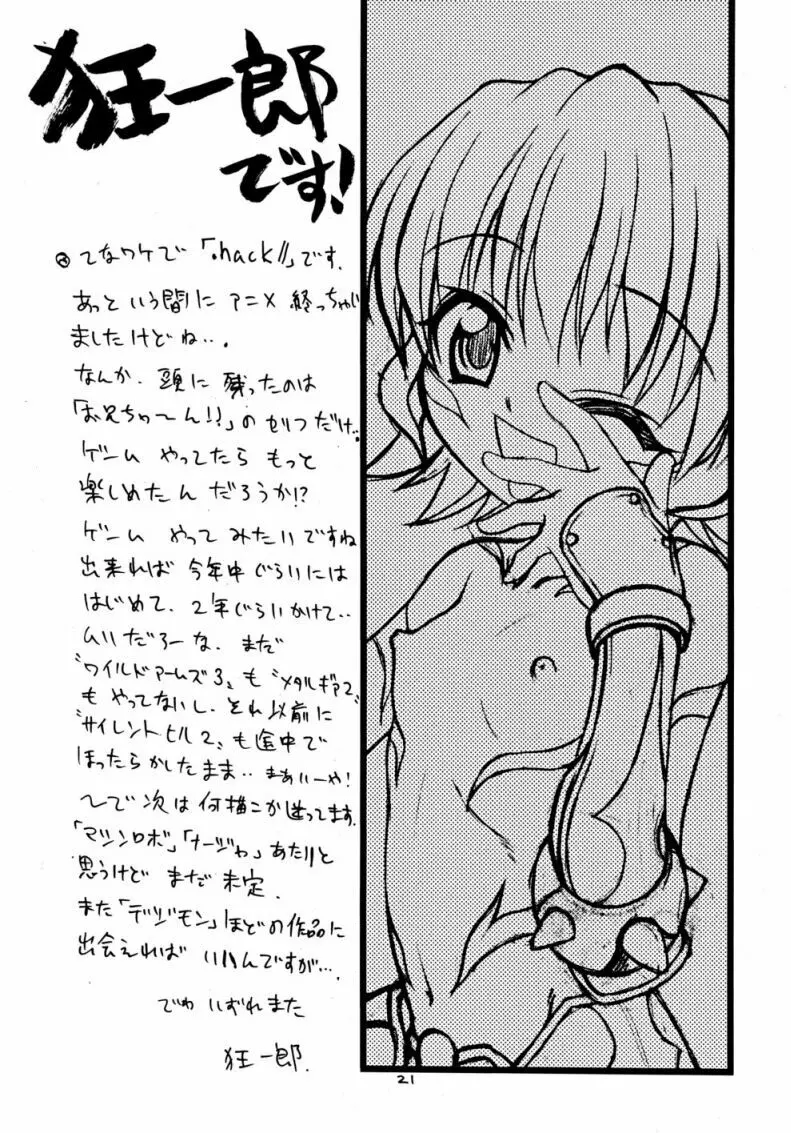 狂一郎
です!
てなワケで「.hack//」です。
あっという間にアニメ終っちゃい
ましたけどね…。
なんか、頭に残ったのは
「お兄ちゃ〜ん!!」のセリフだけ。
ゲームやってたらもっと
楽しめたんだろうか!?
ゲームやってみたいですね
出来れば今年中ぐらいには
はじめて、2年ぐらいかけて‥
ムリだろーな、まだ
"ワイルドアームズ3"も"メタルギア2"
もやってないし、それ以前に
"サイレントヒル2"も途中で
ほったらかしたまま‥まぁいーや!
〜で次は何描こか迷ってます。
「マシンロボ」「ナージャ」あたりと
思うけどまだ未定。
また「デジモン」ほどの作品に
出会えればいいんですが…。
でわいずれまた
狂一郎.
21